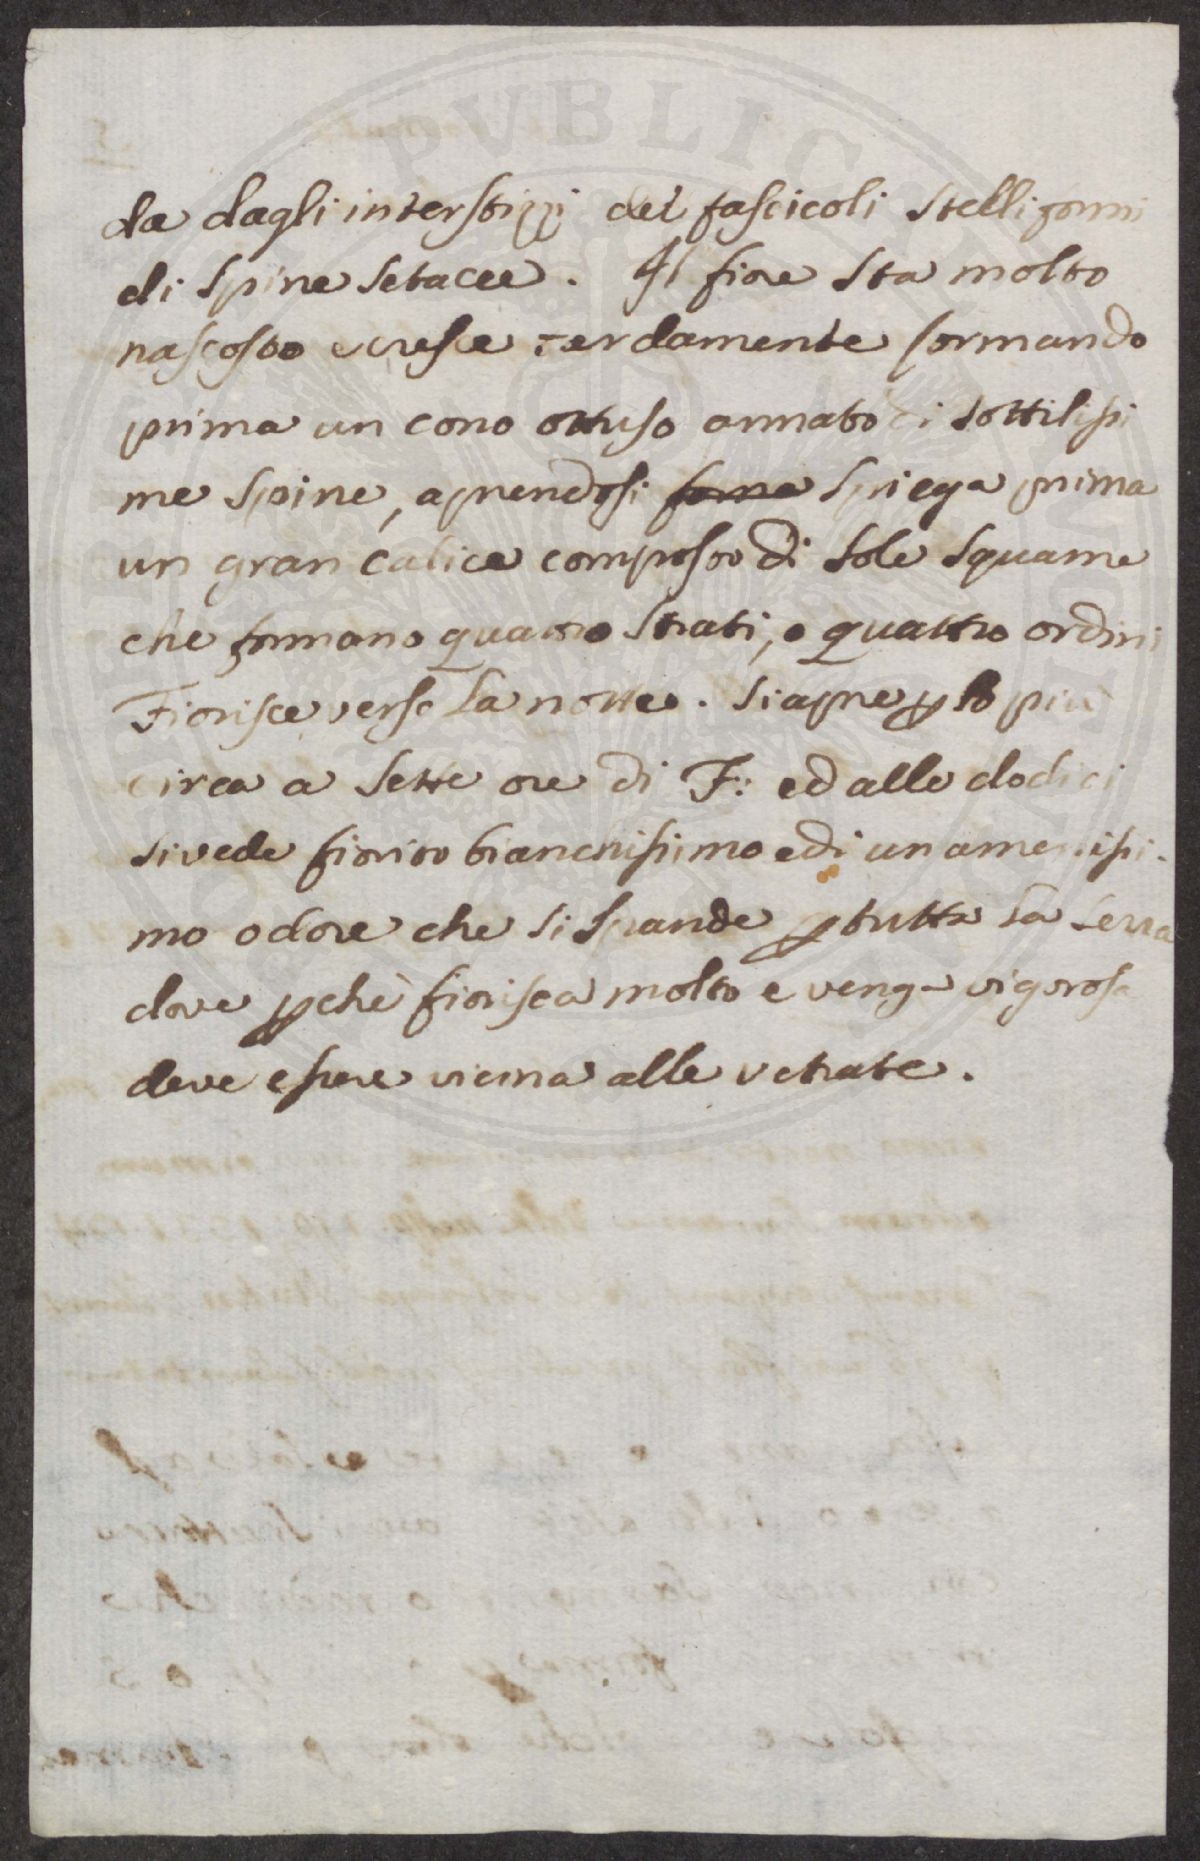 PVBLICV
da dagli interstizzi dei fascicoli stelliformi
di spine setacee. Il fiore sta molto
nascosto e cresce tardamente formando
prima un cono ottuso armato di sottilissi
me spine, aprendosi forma spiega prima
un gran calice composto di sole squame
che formano quattro strati, o quattro ordini
Fiorisce verso la notte. Si apre p lo più
circa a sette ore di F: ed alle dodici
si vede fiorito bianchissimo e di un amenissi-
mo odore che si spande p tutta la serra
dove pchè fiorisca molto e venga vigorosa
deve essere vicina alle vetrate.